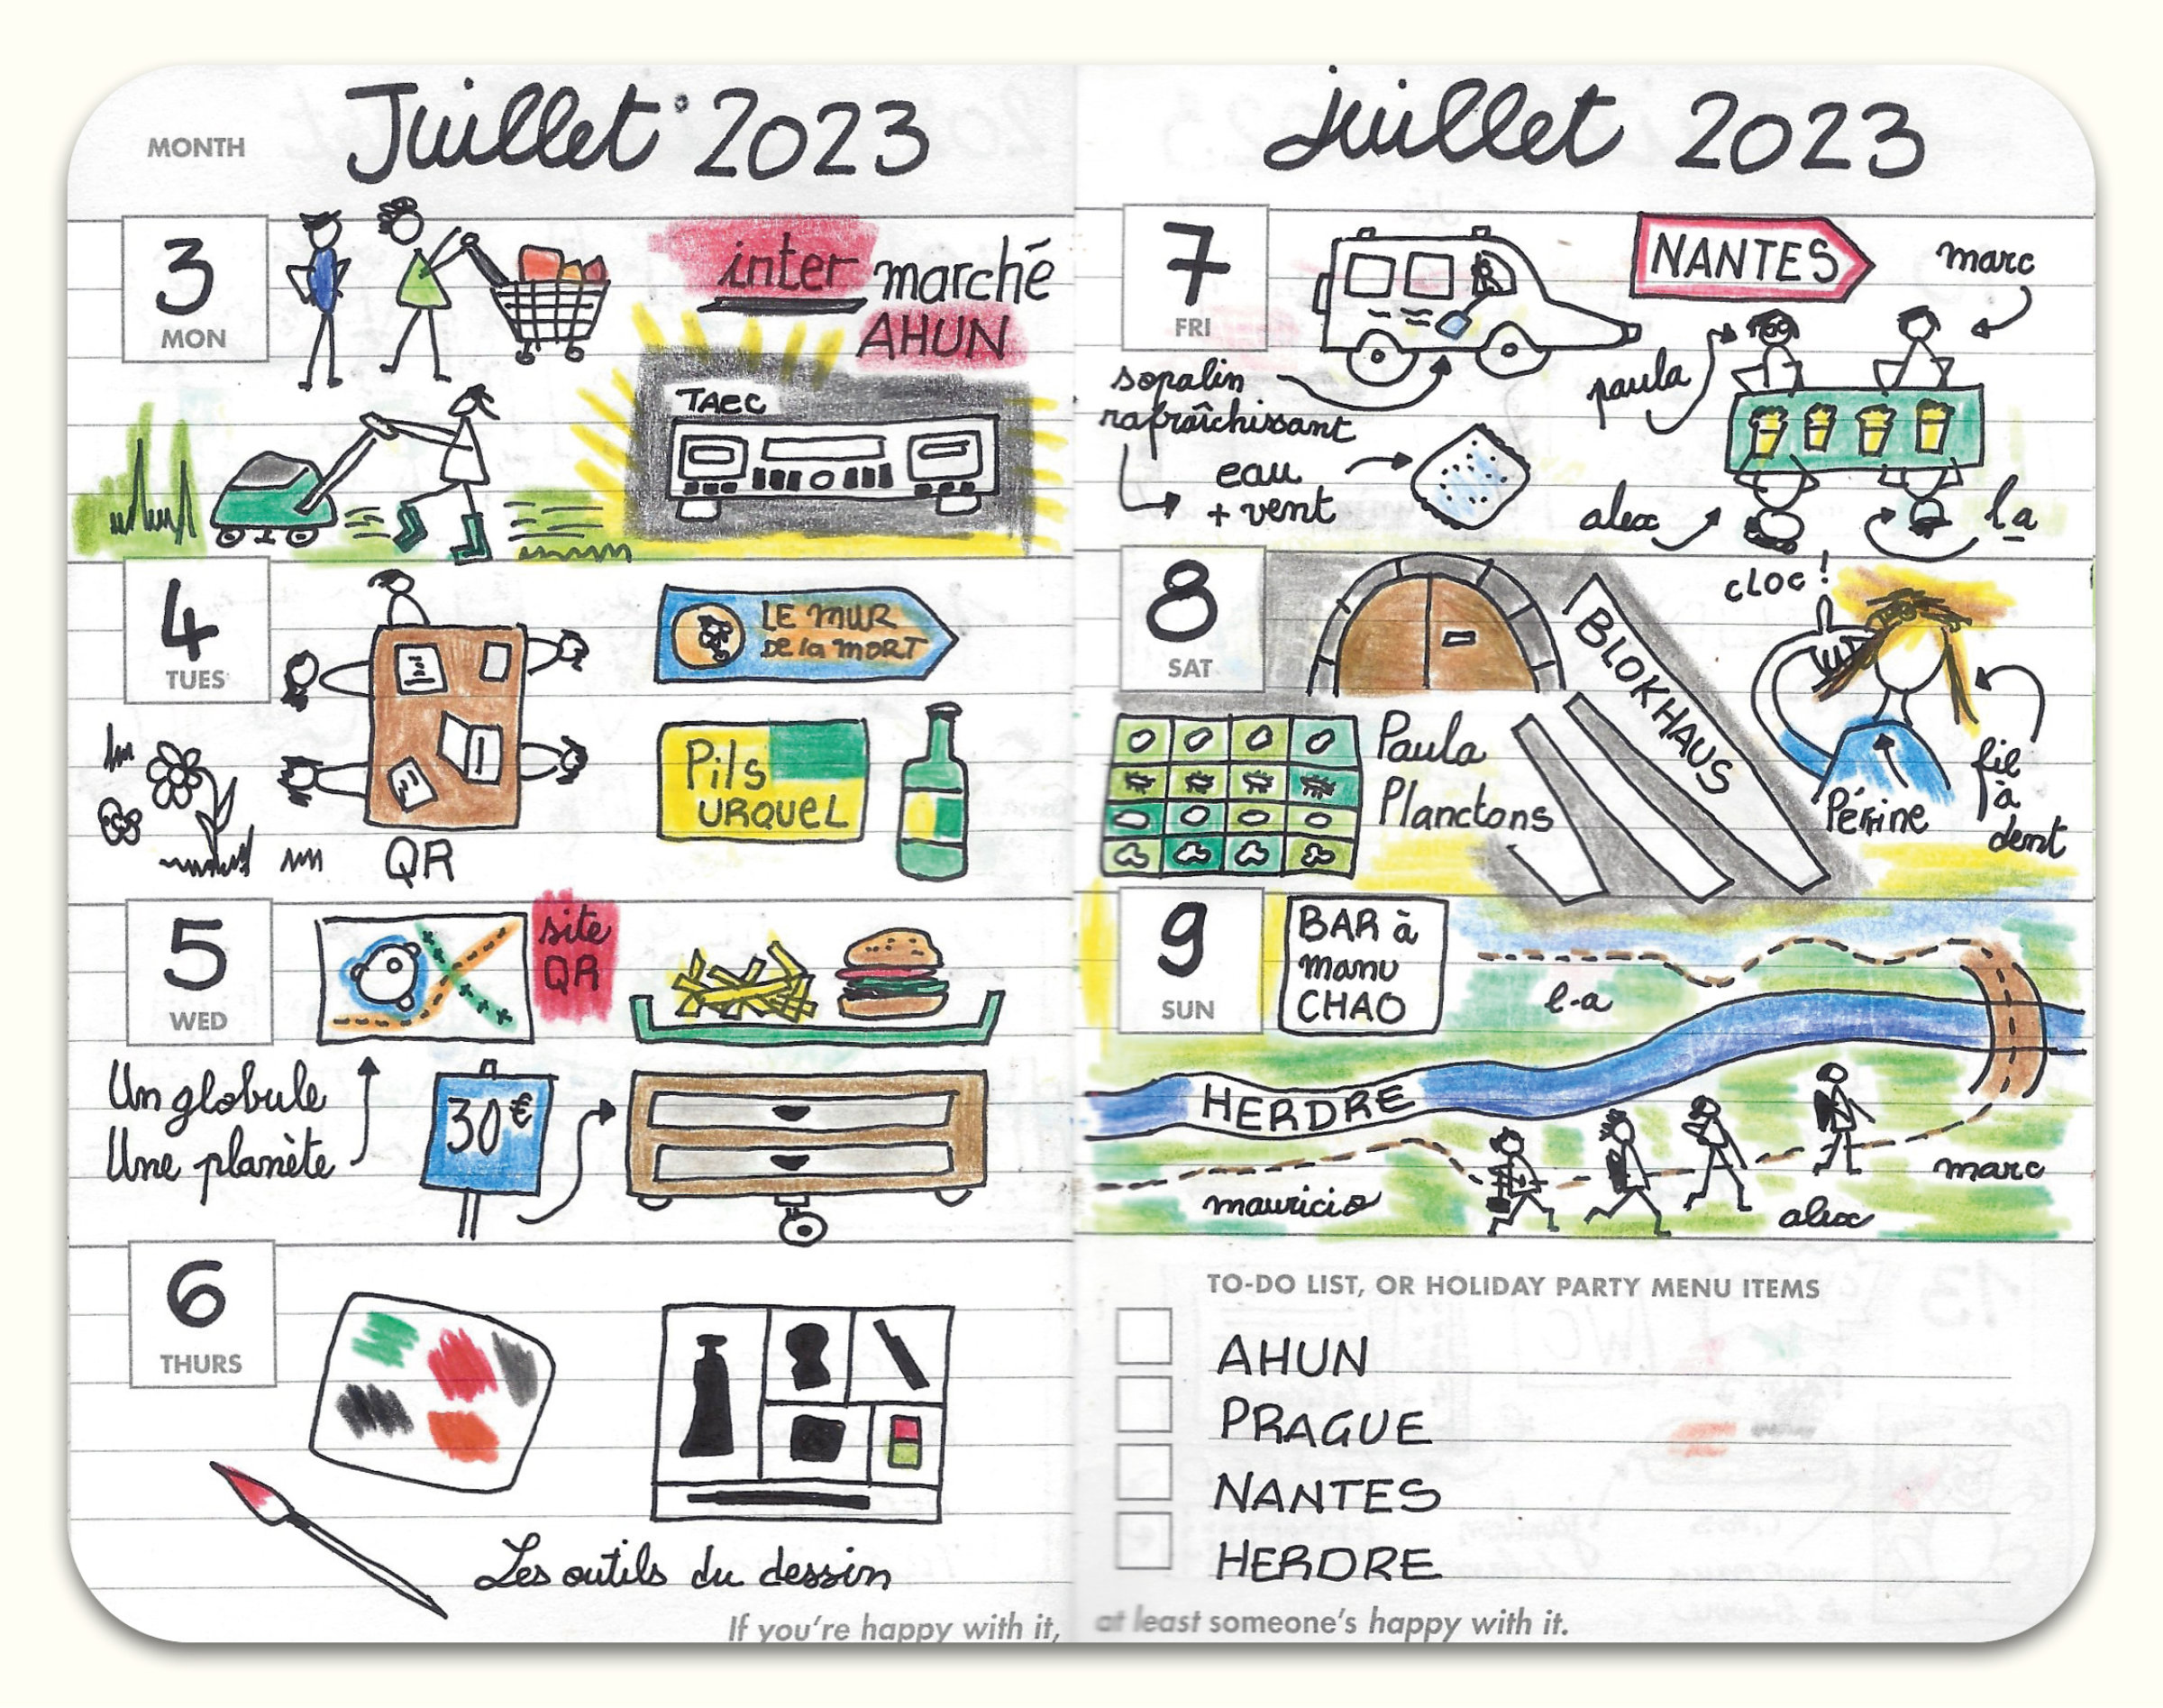 MONTH
Juillet 2023
3
MON
inter marché
AHUN
TAEC
4
TUES
LE MUR
DE la MORT
Pils
URQUEL
QR
5
WED
site
QR
Un globule
Une planète
30€
6
THURS
Les outils du dessin
If you're happy with it,
juillet 2023
7
FRI
NANTES
marc
paula
sopalin
rafraîchissant
eau
+ vent
alex
l.a
8
SAT
cloc !
BLOKHAUS
Paula
Planctons
Périne
fil
à
dent
9
SUN
BAR à
manu
CHAO
l-a
HERDRE
mauricio
alex
marc
TO-DO LIST, OR HOLIDAY PARTY MENU ITEMS
AHUN
PRAGUE
NANTES
HERDRE
at least someone's happy with it.